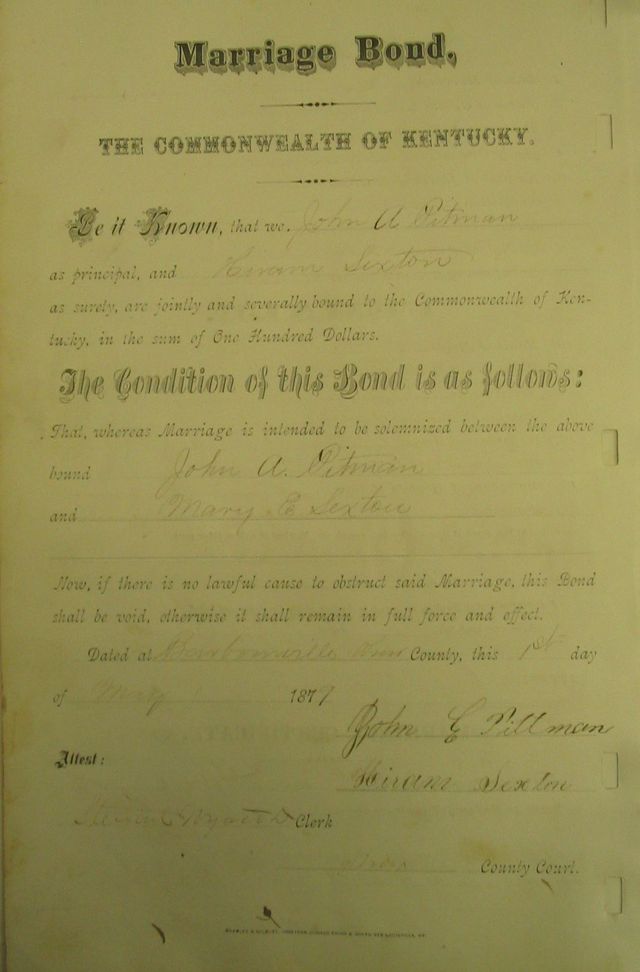 Marriage Bond.
THE COMMONWEALTH OF KENTUCKY.
Be it Known, that we, John A Pitman
as principal, and Hiram Sexton
as surety, are jointly and severally bound to the Commonwealth of Ken-
tucky, in the sum of One Hundred Dollars.
The Condition of this Bond is as follows:
That, whereas Marriage is intended to be solemnized between the above
bound John A. Pitman
and Mary E Sexton
Now, if there is no lawful cause to obstruct said Marriage, this Bond
shall be void, otherwise it shall remain in full force and effect.
Dated at Barbourville Knox County, this 1st day
of May 1879
John E Pillman
Attest:
Hiram Sexton
Clerk
Knox County Court.